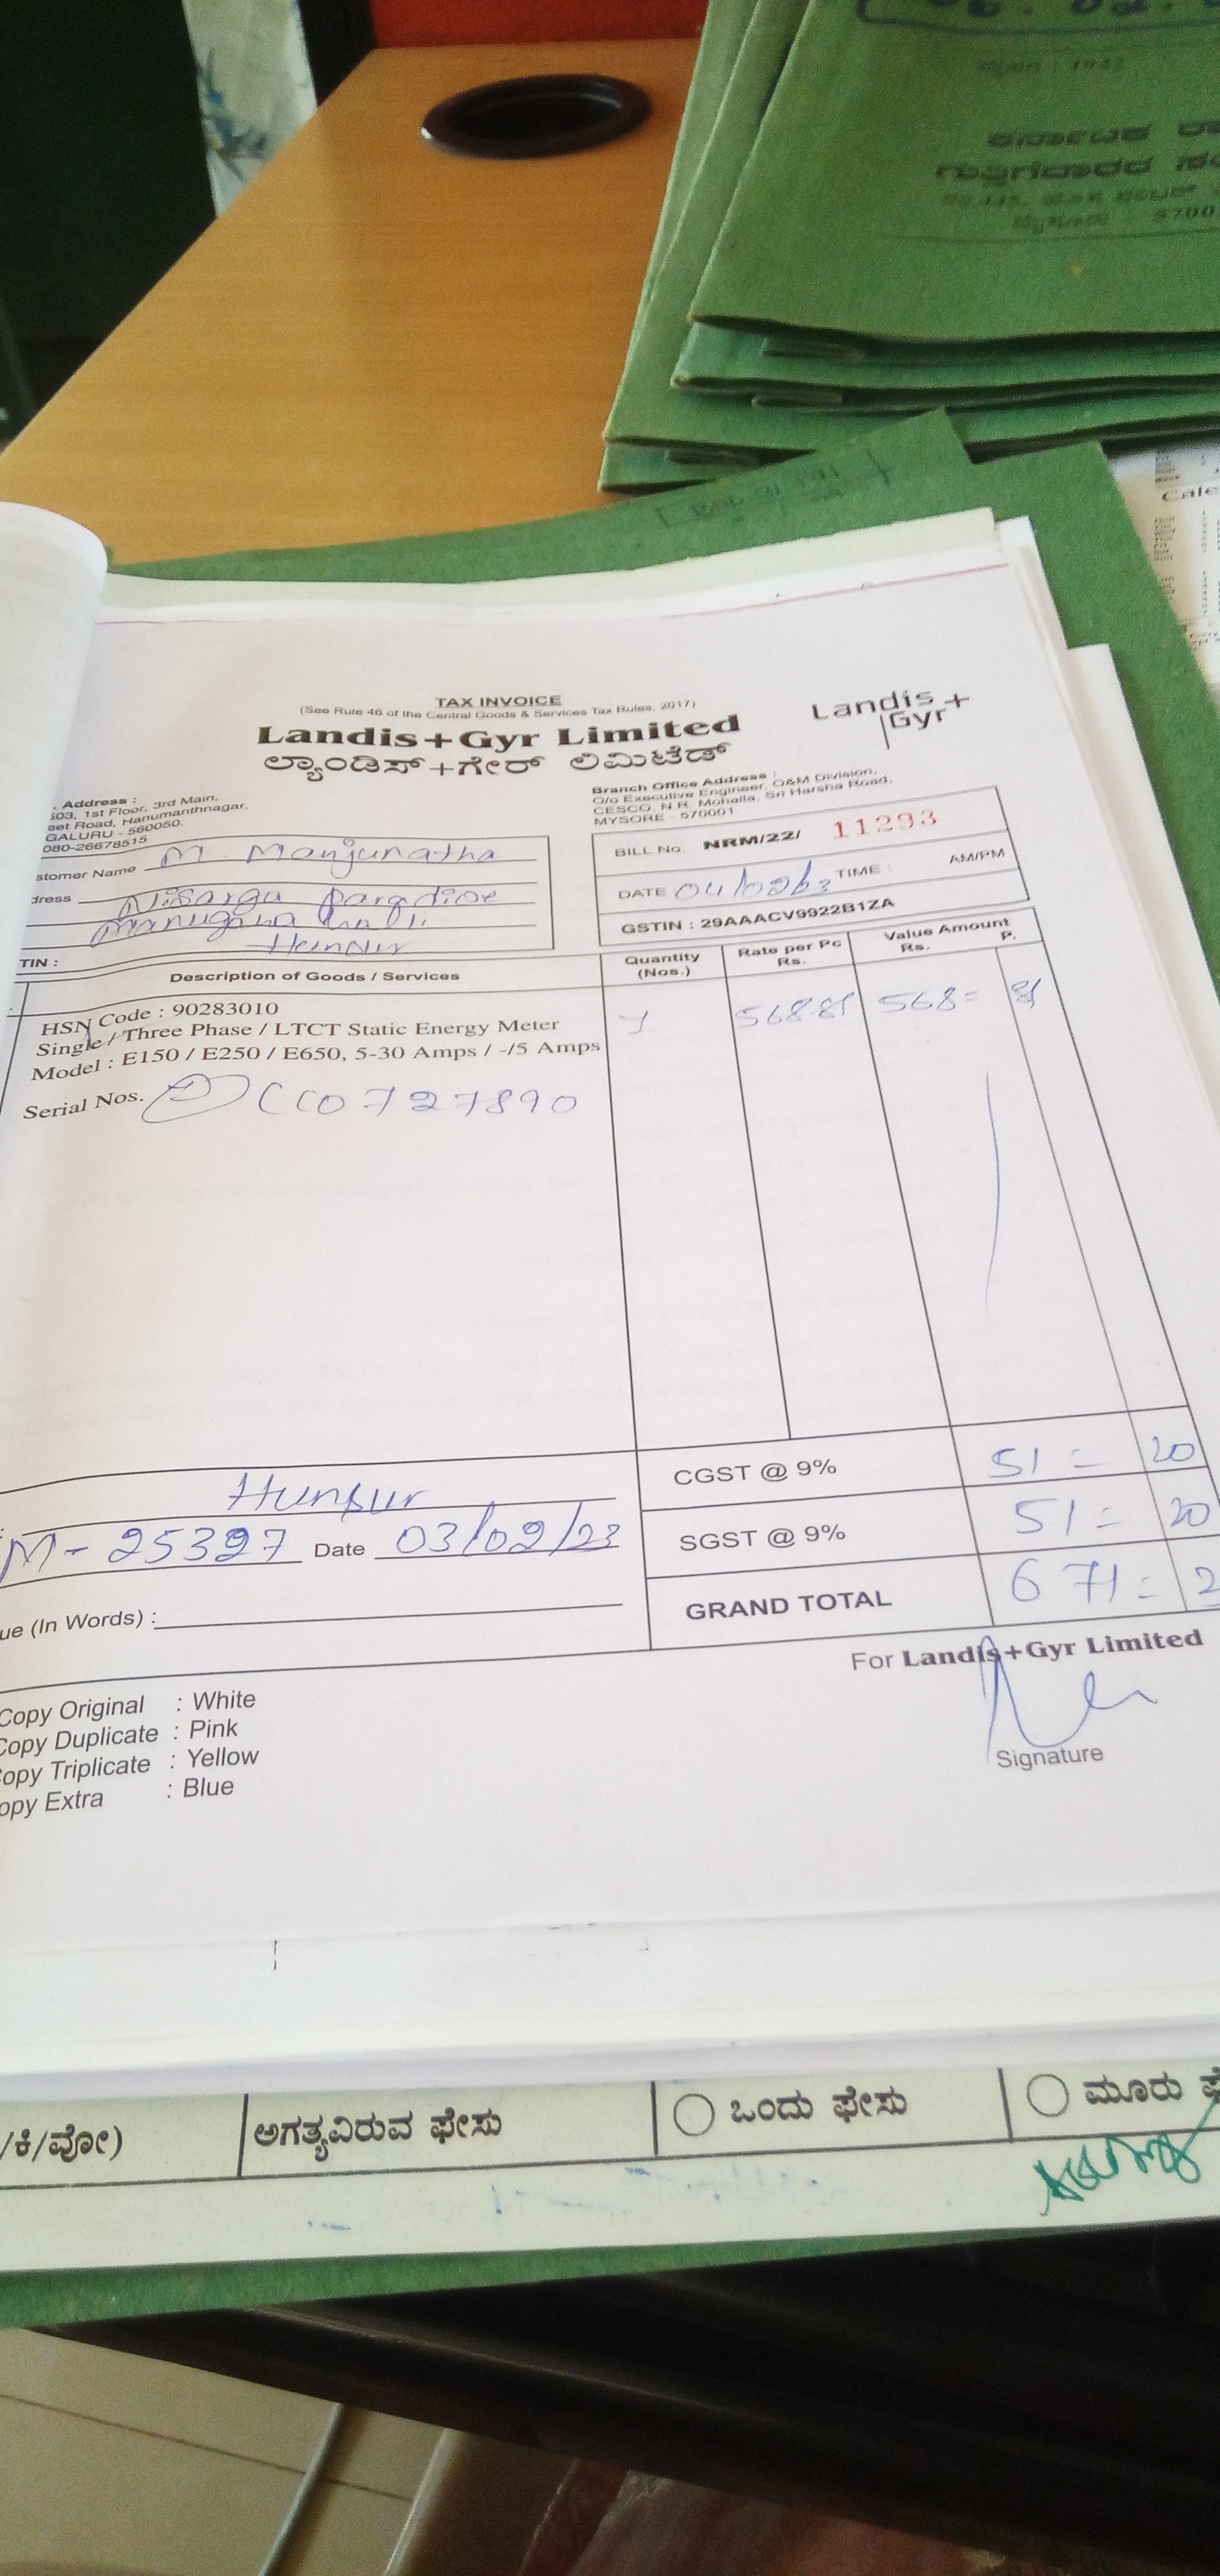 ಕರ್ನಾಟಕ
ಗುತ್ತಿಗೆದಾರರ
5700
TAX INVOICE
(See Rule 46 of the Central Goods & Services Tax Rules, 2017)
Landis+Gyr Limited
ಲ್ಯಾಂಡಿಸ್+ಗೇರ್ ಲಿಮಿಟೆಡ್
Landis+
Gyr
Address :
503, 1st Floor, 3rd Main,
eet Road, Hanumanthnagar,
GALURU - 560050.
080-26678515
Branch Office Address :
O/o Executive Engineer, O&M Division,
CESCO, N.R. Mohalla, Sri Harsha Road,
MYSORE - 570001.
stomer Name M. Manjunatha
dress Nisarga Paradise
Hunsur
TIN :
BILL No. NRM/22/ 11293
DATE 04/02/23 TIME : AM/PM
GSTIN : 29AAACV9922B1ZA
Description of Goods / Services
Quantity (Nos.)
Rate per Pc Rs.
Value Amount Rs. P.
HSN Code : 90283010
Single / Three Phase / LTCT Static Energy Meter
Model : E150 / E250 / E650, 5-30 Amps / -/5 Amps
Serial Nos. CC0727890
1 568.81 568= 81
CGST @ 9% 51= 20
SGST @ 9% 51= 20
GRAND TOTAL 671= 2
Hunsur
M-25327 Date 03/02/23
ue (In Words) :
For Landis+Gyr Limited
Signature
Copy Original : White
Copy Duplicate : Pink
opy Triplicate : Yellow
opy Extra : Blue
/ಕಿ/ವೋ) ಅಗತ್ಯವಿರುವ ಫೇಸು ಒಂದು ಫೇಸು ಮೂರು ಫೇ